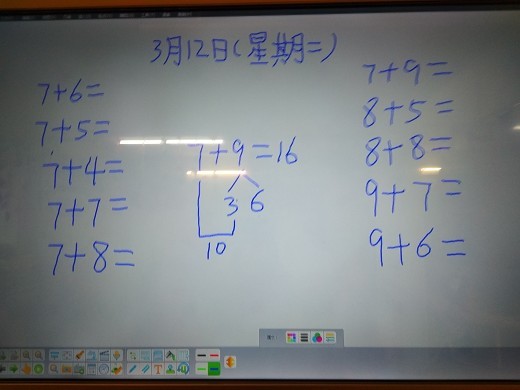 3月12日(星期二)
7+6=
7+5=
7+4=
7+7=
7+8=
7+9=16
3 6
10
7+9=
8+5=
8+8=
9+7=
9+6=